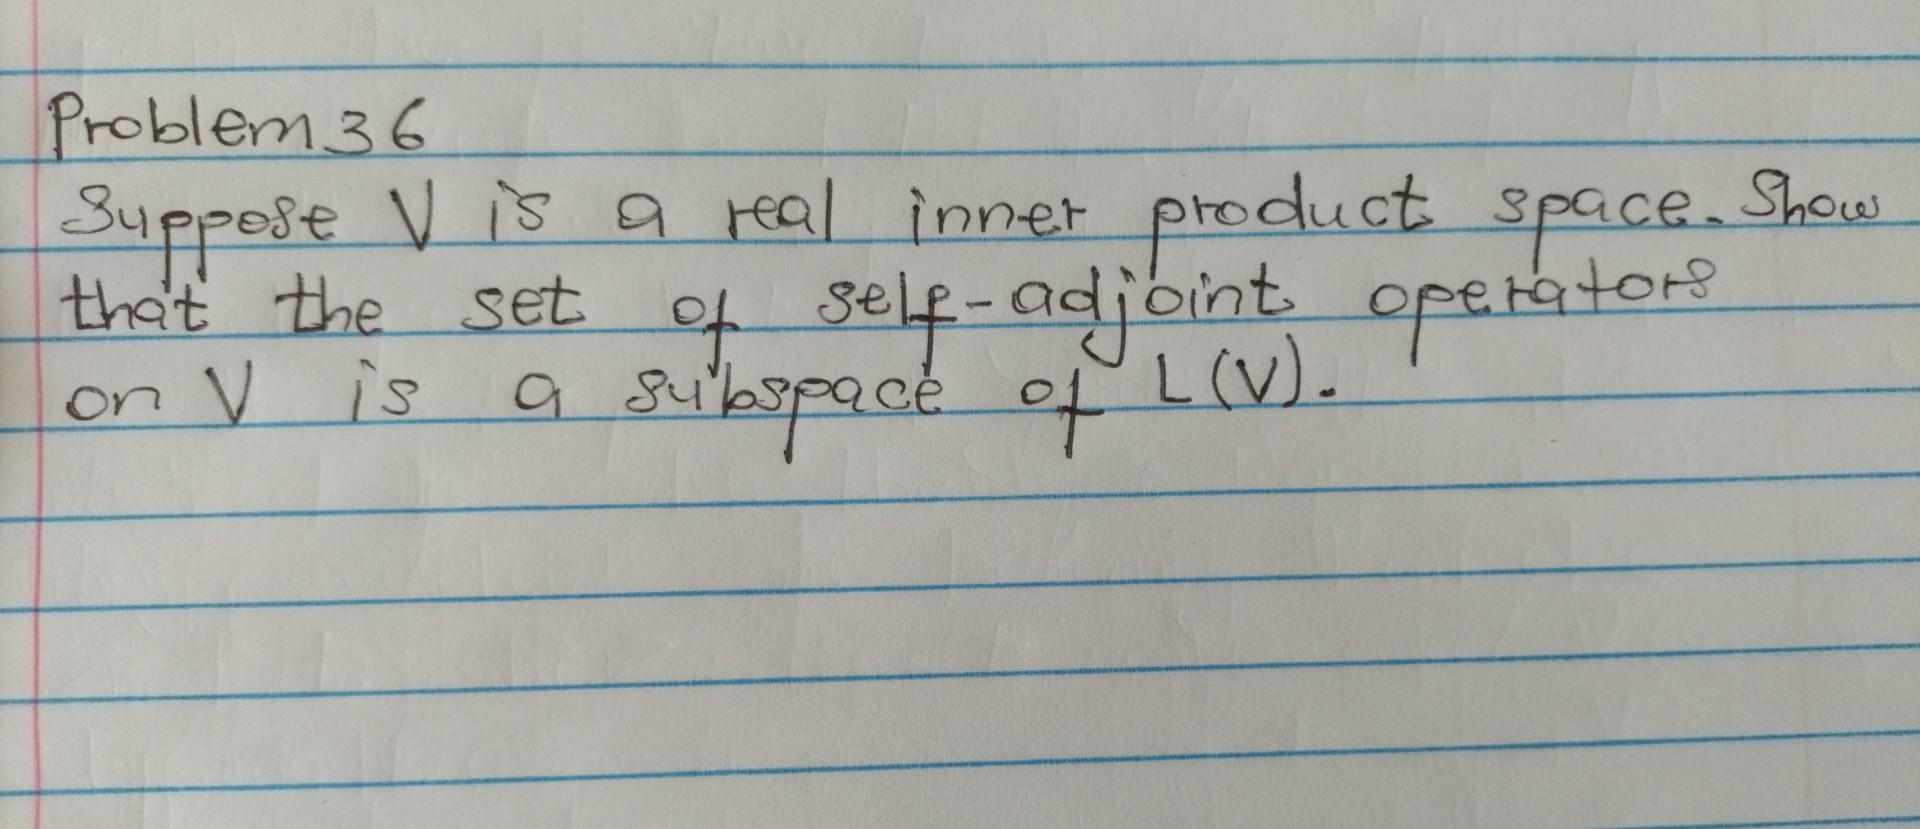 Problem 36
Suppose V is a real inner product space. Show
that the set of self-adjoint operators
on V is a subspace of L(V).